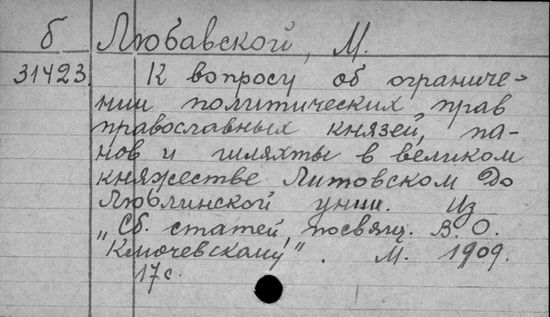 б Любавской, М.
31423. К вопросу об ограниче-
нии политических прав
православных князей, па-
нов и шляхты в великом
княжестве Литовском до
Люблинской унии. Из
„Сб. статей, посвящ. В.О.
Ключевскому". М. 1909.
17 с.